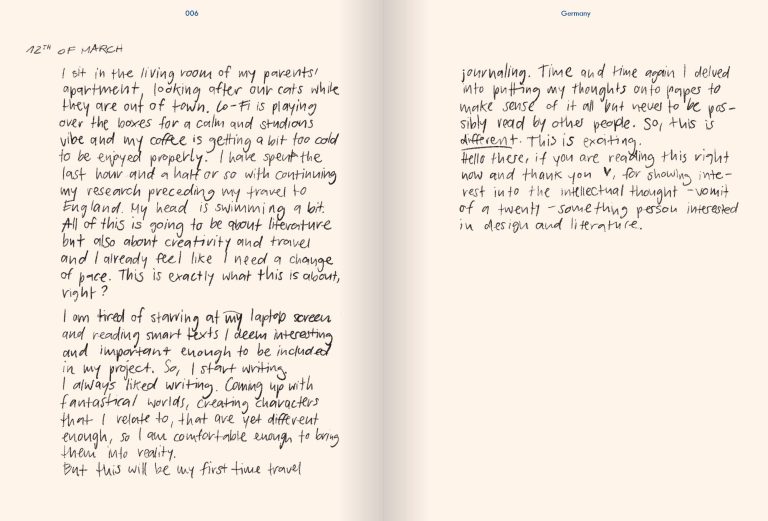 006
12TH OF MARCH
I sit in the living room of my parents'
apartment, looking after our cats while
they are out of town. Lo-Fi is playing
over the boxes for a calm and studious
vibe and my coffee is getting a bit too cold
to be enjoyed properly. I have spent the
last hour and a half or so with continuing
my research preceding my travel to
England. My head is swimming a bit.
All of this is going to be about literature
but also about creativity and travel
and I already feel like I need a change
of pace. This is exactly what this is about,
right?
I am tired of starring at my laptop screen
and reading smart texts I deem interesting
and important enough to be included
in my project. So, I start writing.
I always liked writing. Coming up with
fantastical worlds, creating characters
that I relate to, that are yet different
enough, so I am comfortable enough to bring
them into reality.
But this will be my first time travel
Germany
journaling. Time and time again I delved
into putting my thoughts onto papes to
make sense of it all but never to be pos-
sibly read by other people. So, this is
different. This is exciting.
Hello there, if you are reading this right
now and thank you ♥, for showing inte-
rest into the intellectual thought-vomit
of a twenty-something person interested
in design and literature.